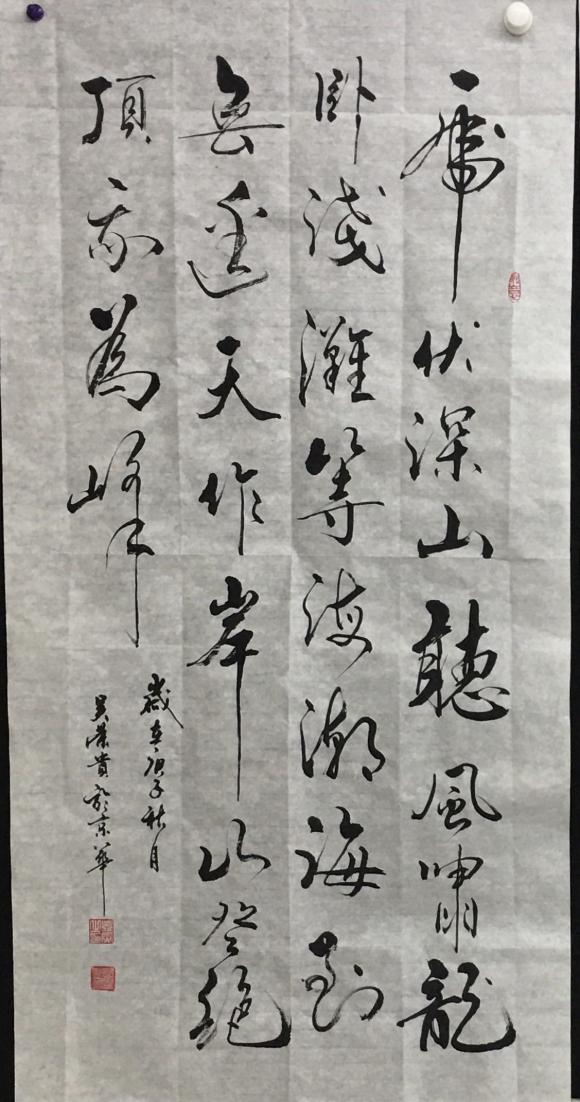 虎伏深山聽風嘯龍
臥淺灘等海潮海到
無邊天作岸山登絕
頂我為峰
歲在庚子秋月
吴景貴於京華